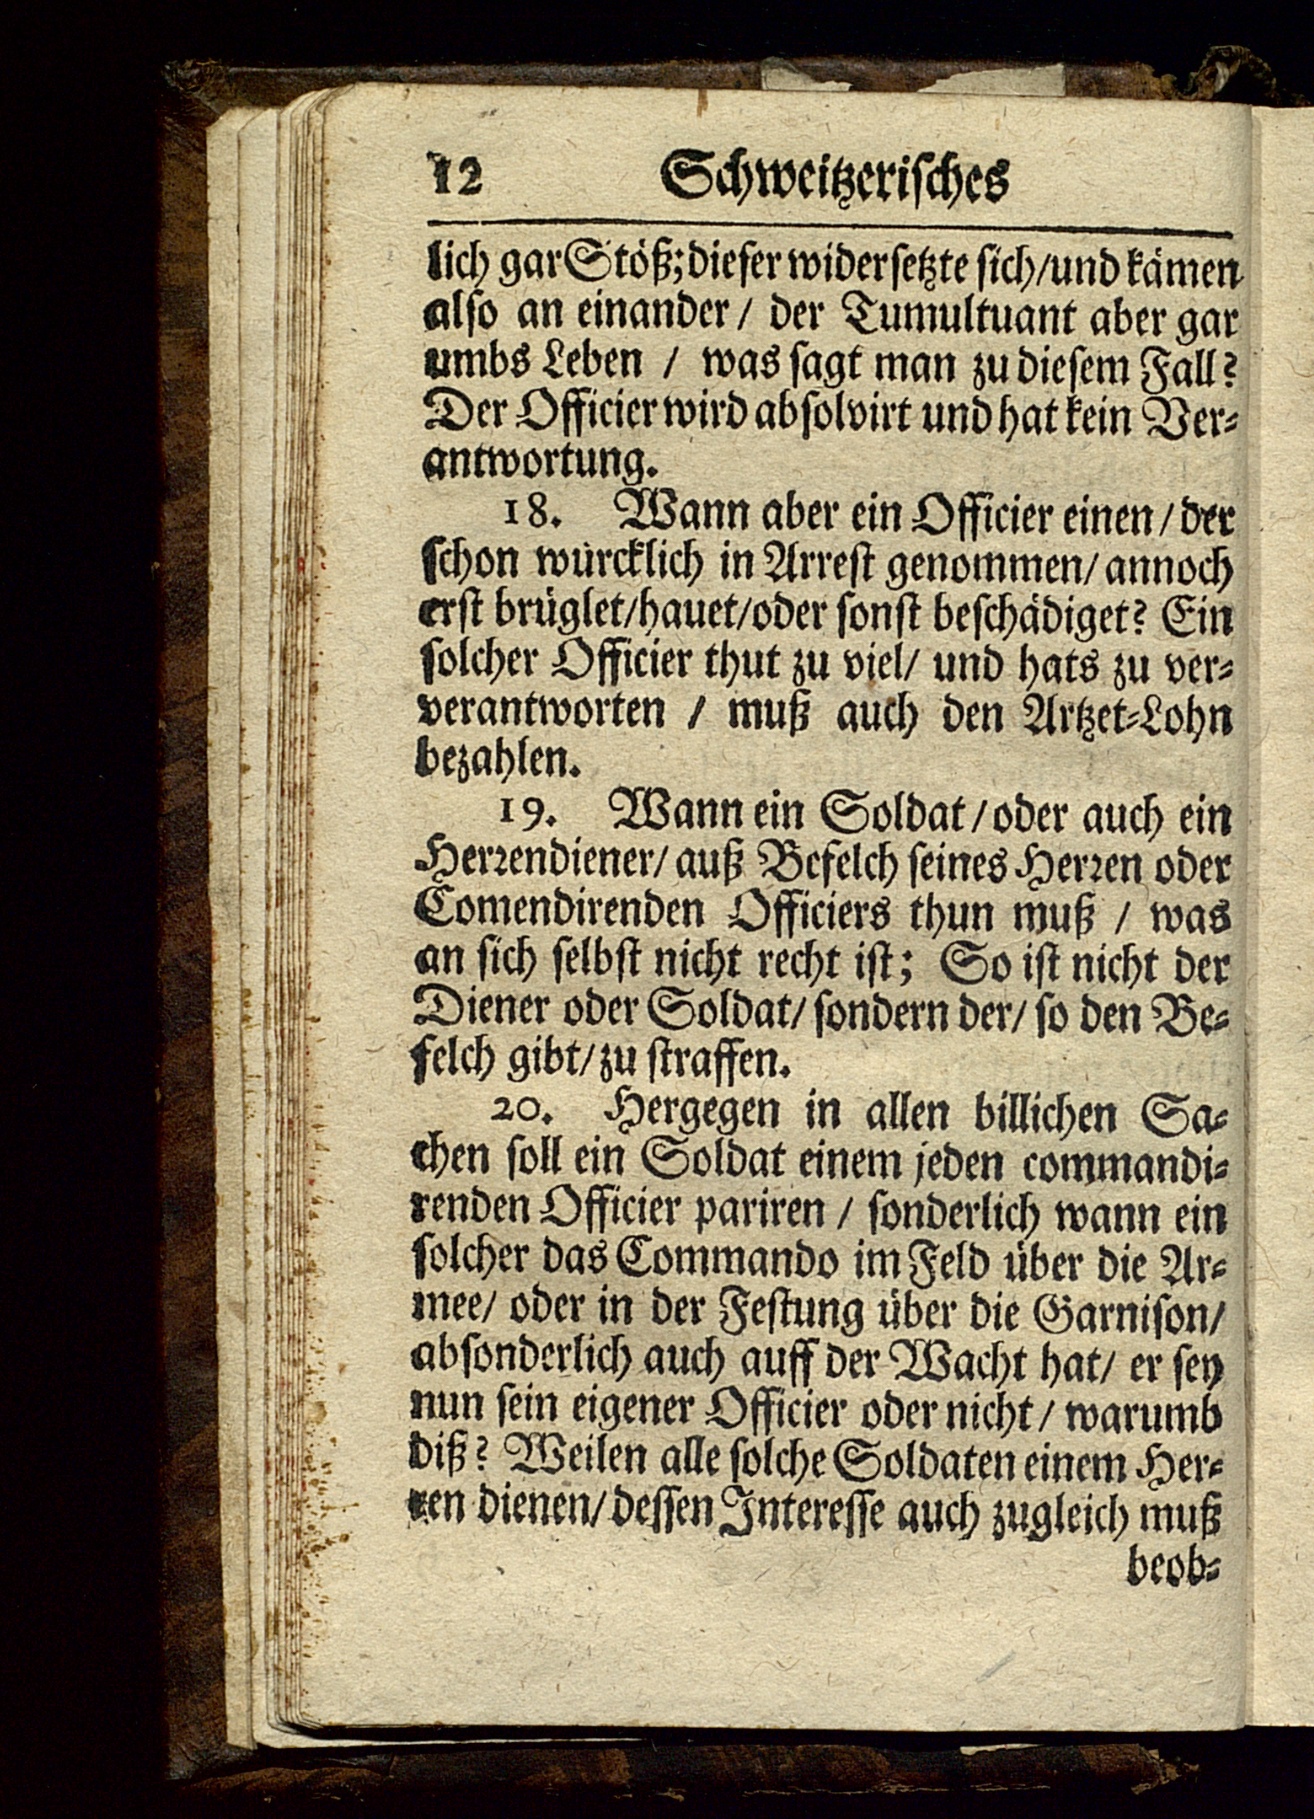 12 Schweitzerisches
lich gar Stöß; dieser widersetzte sich/ und kämen
also an einander / der Tumultuant aber gar
umbs Leben / was sagt man zu diesem Fall?
Der Officier wird absolvirt und hat kein Ver-
antwortung.
18. Wann aber ein Officier einen / der
schon würcklich in Arrest genommen/ annoch
erst brüglet/ hauet/ oder sonst beschädiget? Ein
solcher Officier thut zu viel/ und hats zu ver-
verantworten / muß auch den Artzet-Lohn
bezahlen.
19. Wann ein Soldat / oder auch ein
Herrendiener/ auß Befelch seines Herren oder
Comendirenden Officiers thun muß / was
an sich selbst nicht recht ist; So ist nicht der
Diener oder Soldat/ sondern der/ so den Be-
felch gibt/ zu straffen.
20. Hergegen in allen billichen Sa-
chen soll ein Soldat einem jeden commandi-
renden Officier pariren / sonderlich wann ein
solcher das Commando im Feld über die Ar-
mee/ oder in der Festung über die Garnison/
absonderlich auch auff der Wacht hat/ er sey
nun sein eigener Officier oder nicht / warumb
diß? Weilen alle solche Soldaten einem Her-
ren dienen/ dessen Interesse auch zugleich muß
beob-